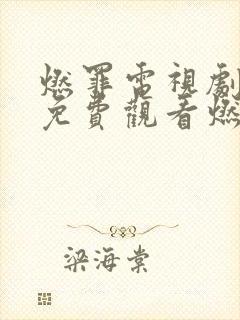 燃罪電視劇
免費觀看燃
梁海棠